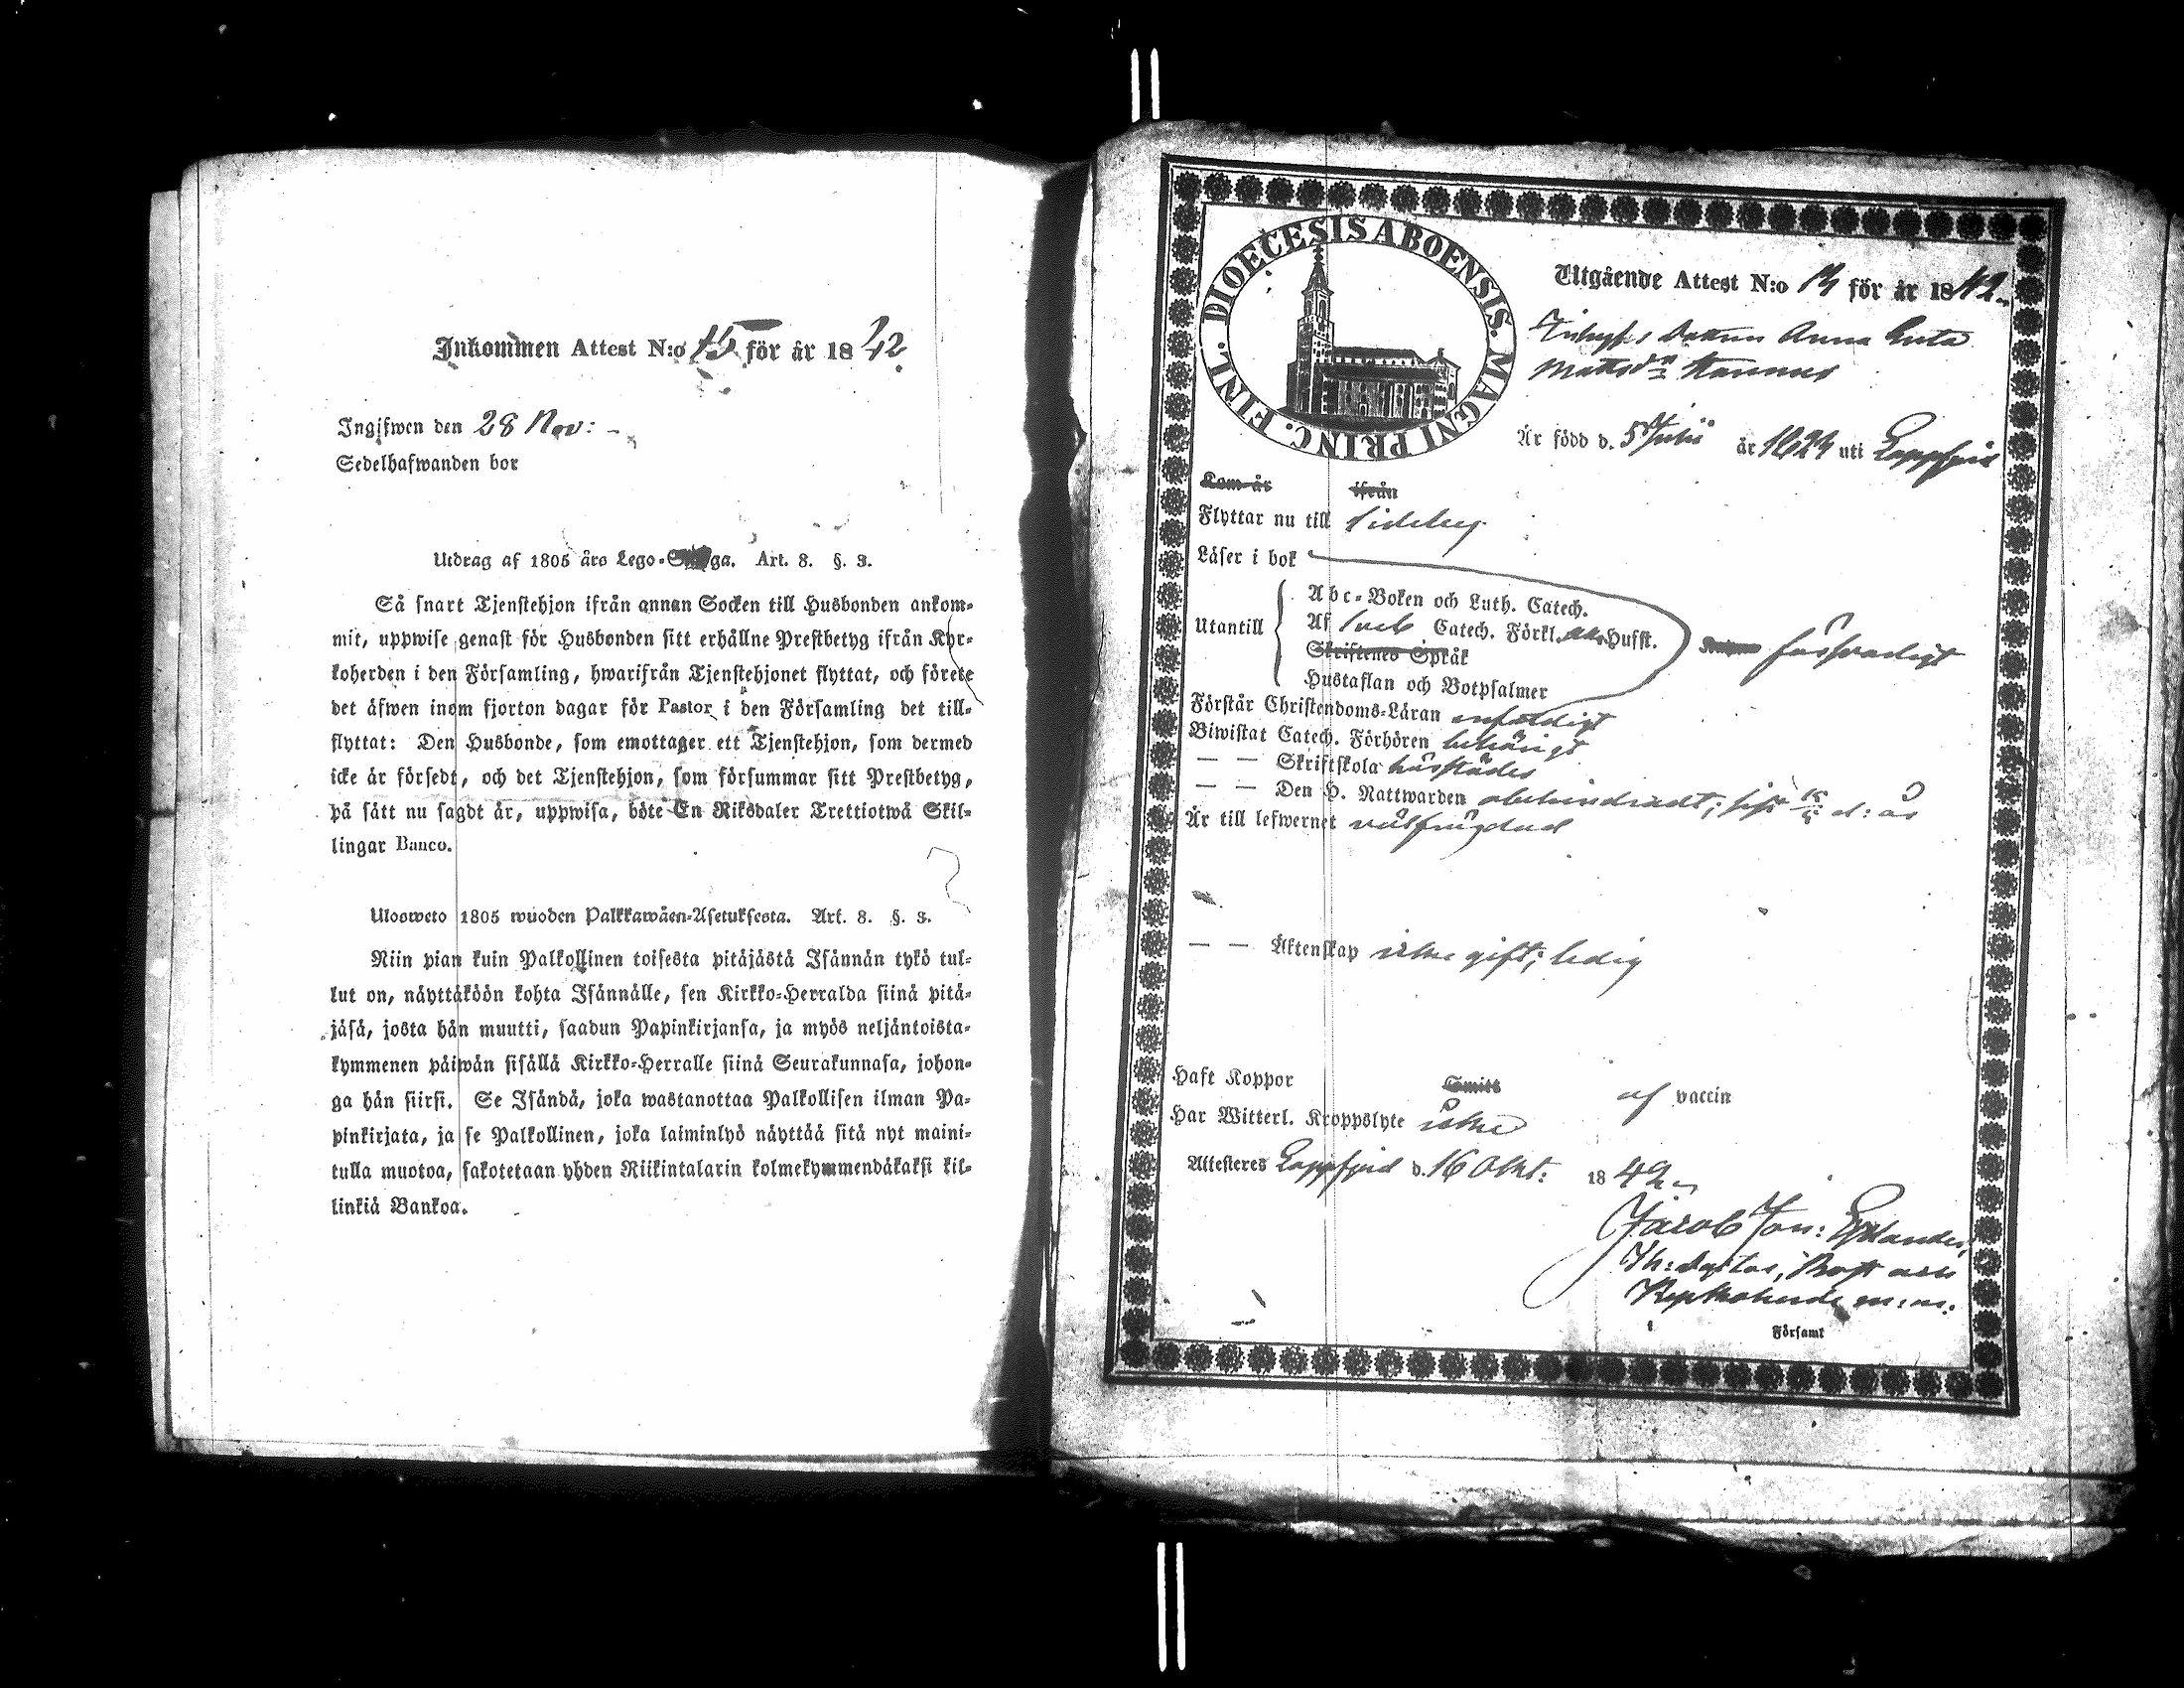 Inkommen Attest N:o 15 för år 1842.
Ingifwen den 28 Nov: -
Sedelhafwanden bor
Utdrag af 1805 års Lego-Stadga. Art. 8. §. 3.
Så snart Tjenstehjon ifrån annan Socken till Husbonden ankom-
mit, uppwise genast för Husbonden sitt erhållne Prestbetyg ifrån Kyr-
koherden i den Församling, hwarifrån Tjenstehjonet flyttat, och förete
det äfwen inom fjorton dagar för Pastor i den Församling det till-
flyttat: Den Husbonde, som emottager ett Tjenstehjon, som dermed
icke är försedt, och det Tjenstehjon, som försummar sitt Prestbetyg,
på sätt nu sagdt är, uppwisa, böte En Riksdaler Trettiotwå Skil-
lingar Banco.
Ulosweto 1805 wuoden Palkkawäen-Asetuksesta. Art. 8. §. 3.
Niin pian kuin Palkollinen toisesta pitäjästä Isännän tykö tul-
lut on, näyttäköön kohta Isännälle, sen Kirkko-Herralda siinä pitä-
jäsä, josta hän muutti, saadun Papinkirjansa, ja myös neljäntoista-
kymmenen päiwän sisällä Kirkko-Herralle siinä Seurakunnasa, johon-
ga hän siirsi. Se Isändä, joka wastanottaa Palkollisen ilman Pa-
pinkirjata, ja se Palkollinen, joka laiminlyö näyttää sitä nyt maini-
tulla muotoa, sakotetaan yhden Riikintalarin kolmekymmendäkaksi kil-
linkiä Bankoa.
DIOECESIS ABOENSIS. MAGNI PRINC. FINL.
Utgående Attest N:o för år 1842.
dottren Anna Greta
Mattsdr
Är född d. 5 Julii år 1824 uti Lappfjerd
Kom år ifrån
Flyttar nu till Sideby
Läser i bok
Utantill
Abc-Boken och Luth. Catech.
Af Sveb Catech. Förkl. Husst.
Skriftenes Språk
Hustaflan och Botpsalmer
försvarligt
Förstår Christendoms-Läran enfaldigt
Biwistat Catech. Förhören behörigt
— — Skriftskola härstädes
— — Den H. Nattwarden obehindradt; sist d: år
Är till lefwernet välfrägdad
— — Äktenskap icke gift; ledig
Haft Koppor Smitt af vaccin
Har Witterl. Kroppslyte icke
Attesteres Lappfjerd d. 16 Okt: 1842
Jacob Jon: Estlander,
Th: doctor, Prost och
Kyrkoherde m: m:
i Församl